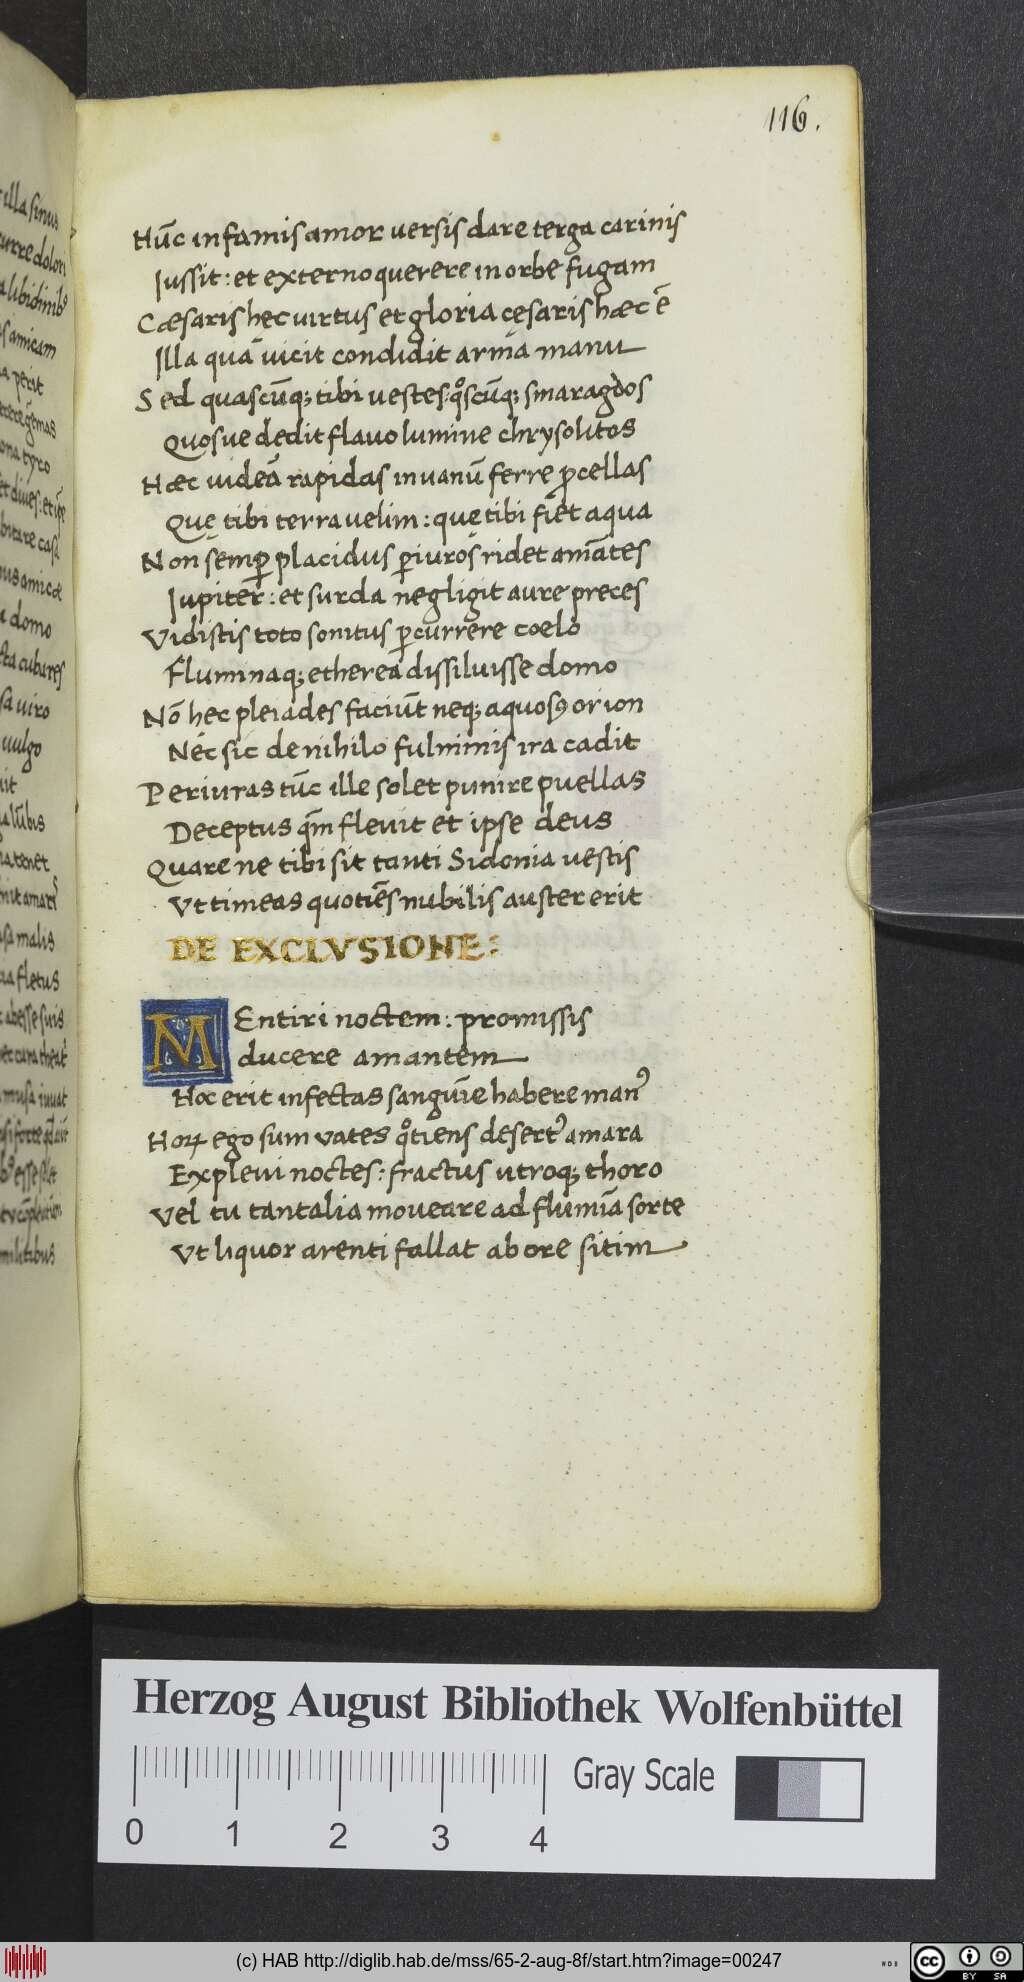 116.
Hūc infamis amor versis dare terga carinis
Jussit: et externo querere in orbe fugam
Cæsaris hęc uirtus et gloria cęsaris hæc ē
Illa quā uicit condidit arma manu
Sed quascūq; tibi uestes: qͦscūq; smaragdos
Quosue dedit flauo lumine chrysolitos
Hæc uideā rapidas in uanū ferre ꝓcellas
Quę tibi terra uelim: quę tibi fiet aqua
Non semꝑ placidus ꝑiuros ridet amātes
Jupiter: et surda negligit aure preces
Vidistis toto sonitus ꝑcurrere coelo
Fluminaq; etherea dissiluisse domo
Nō hec pleiades faciūt neq; aquosꝰ orion
Nec sic de nihilo fulminis ira cadit
Periuras tūc ille solet punire puellas
Deceptus qm̄ fleuit et ipse deus
Quare ne tibi sit tanti Sidonia uestis
Vt timeas quotiēs nubilis auster erit
DE EXCLVSIONE:
MEntiri noctem: promissis
ducere amantem
Hoc erit infectas sanguīe habere manꝰ
Hoꝝ ego sum vates qͦtiens desertꝰ amara
Expleui noctes: fractus utroq; thoro
Vel tu tantalia moueare ad flumīa sorte
Vt liquor arenti fallat ab ore sitim
Herzog August Bibliothek Wolfenbüttel
0 1 2 3 4
Gray Scale
(c) HAB http://diglib.hab.de/mss/65-2-aug-8f/start.htm?image=00247